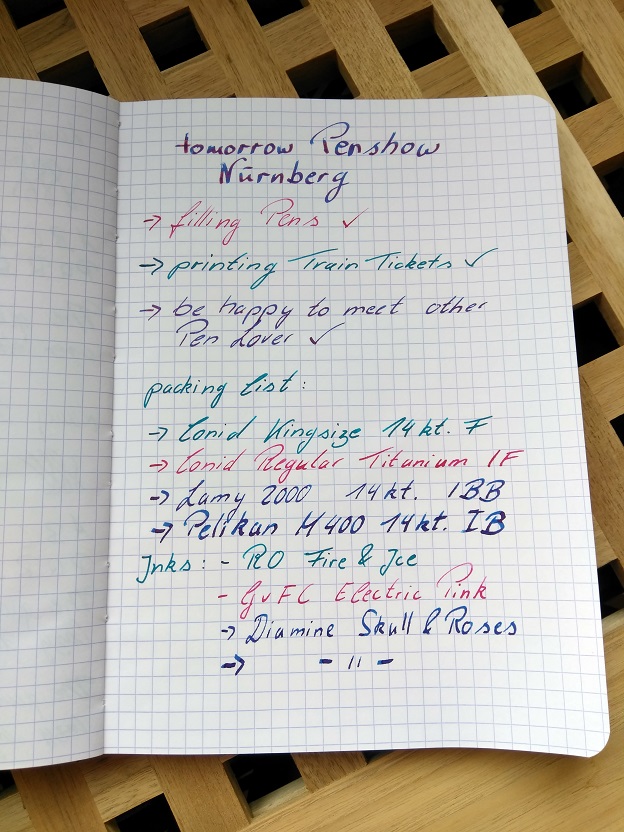 tomorrow Penshow
Nürnberg
→ filling Pens ✓
→ printing Train Tickets ✓
→ be happy to meet other
Pen Lover ✓
packing list:
→ Conid Kingsize 14kt. F
→ Conid Regular Titanium IF
→ Lamy 2000 14kt. IBB
→ Pelikan M400 14kt. IB
Inks: - RO Fire & Ice
- GvFC Electric Pink
→ Diamine Skull & Roses
→ - 11 -